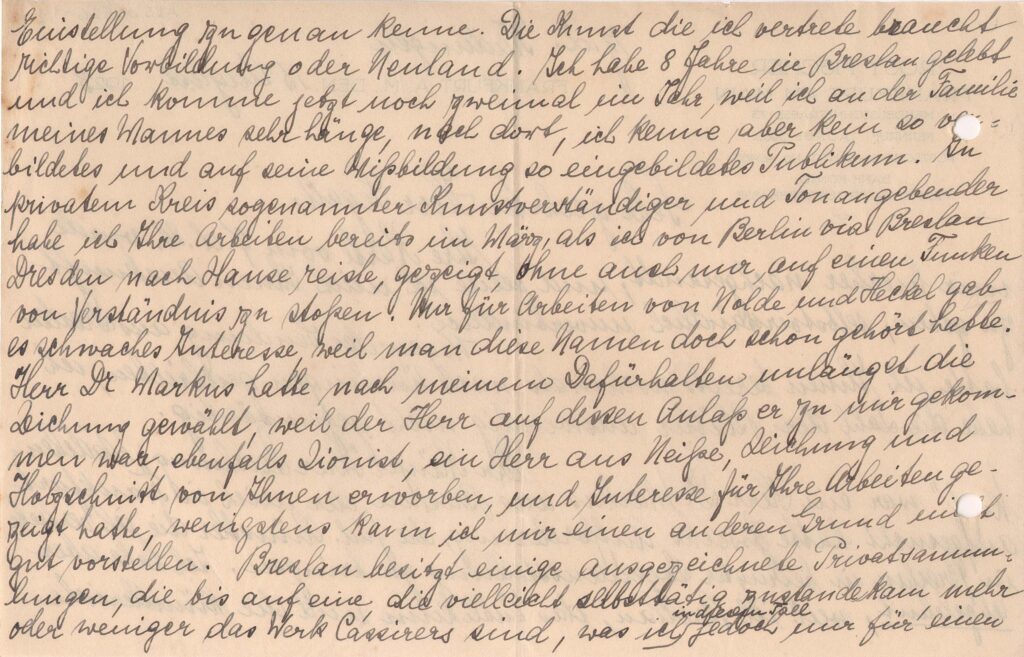 Einstellung zu genau kenne. Die Kunst die ich vertrete braucht
richtige Vorbildung oder Neuland. Ich habe 8 Jahre in Breslau gelebt
und ich komme jetzt noch zweimal im Jahr, weil ich an der Familie
meines Mannes sehr hänge, nach dort, ich kenne aber kein so
bildetes und auf seine Mißbildung so eingebildetes Publikum. In
privatem Kreis sogenannter Kunstverständiger und Tonangebender
habe ich Ihre Arbeiten bereits im März, als ich von Berlin via Breslau
Dresden nach Hause reiste, gezeigt, ohne auch nur auf einen Funken
von Verständnis zu stoßen. Nur für Arbeiten von Nolde und Heckel gab
es schwaches Interesse, weil man diese Namen doch schon gehört hatte.
Herr Dr Markus hatte nach meinem Dafürhalten unlängst die
Zeichnung gewählt, weil der Herr auf dessen Anlaß er zu mir gekom-
men war, ebenfalls Zionist, ein Herr aus Neiße, Zeichnung und
Holzschnitt von Ihnen erworben, und Interesse für Ihre Arbeiten ge-
zeigt hatte, wenigstens kann ich mir einen anderen Grund nicht
gut vorstellen. Breslau besitzt einige ausgezeichnete Privatsamm-
lungen, die bis auf eine, die vielleicht selbsttätig zustandekam mehr
oder weniger das Werk Cassirers sind, was ich in diesem Fall jedoch nur für einen